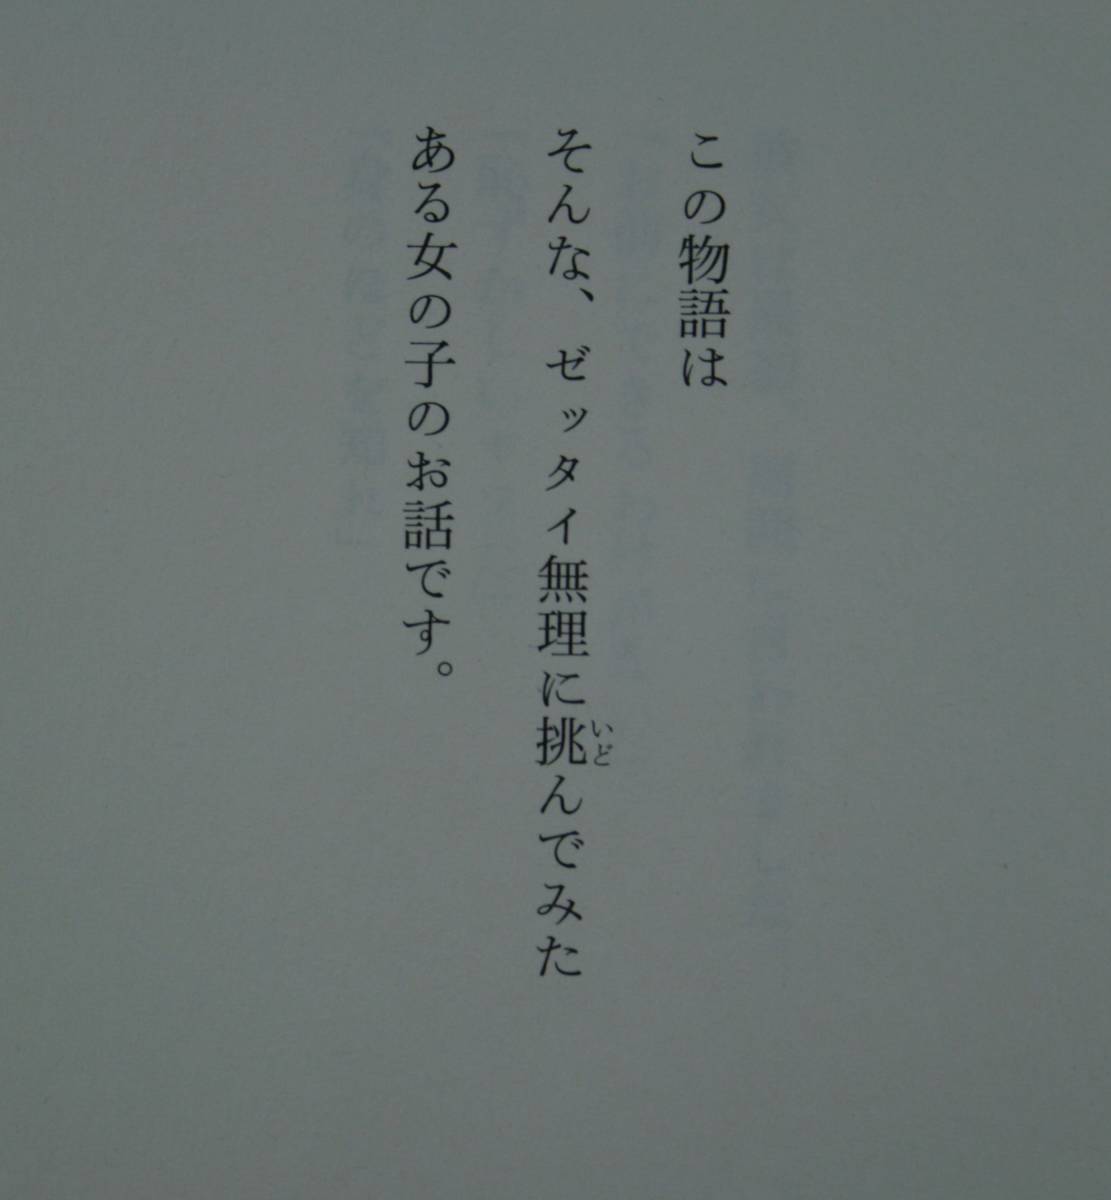 この物語は
そんな、ゼッタイ無理に挑んでみた
いど
ある女の子のお話です。